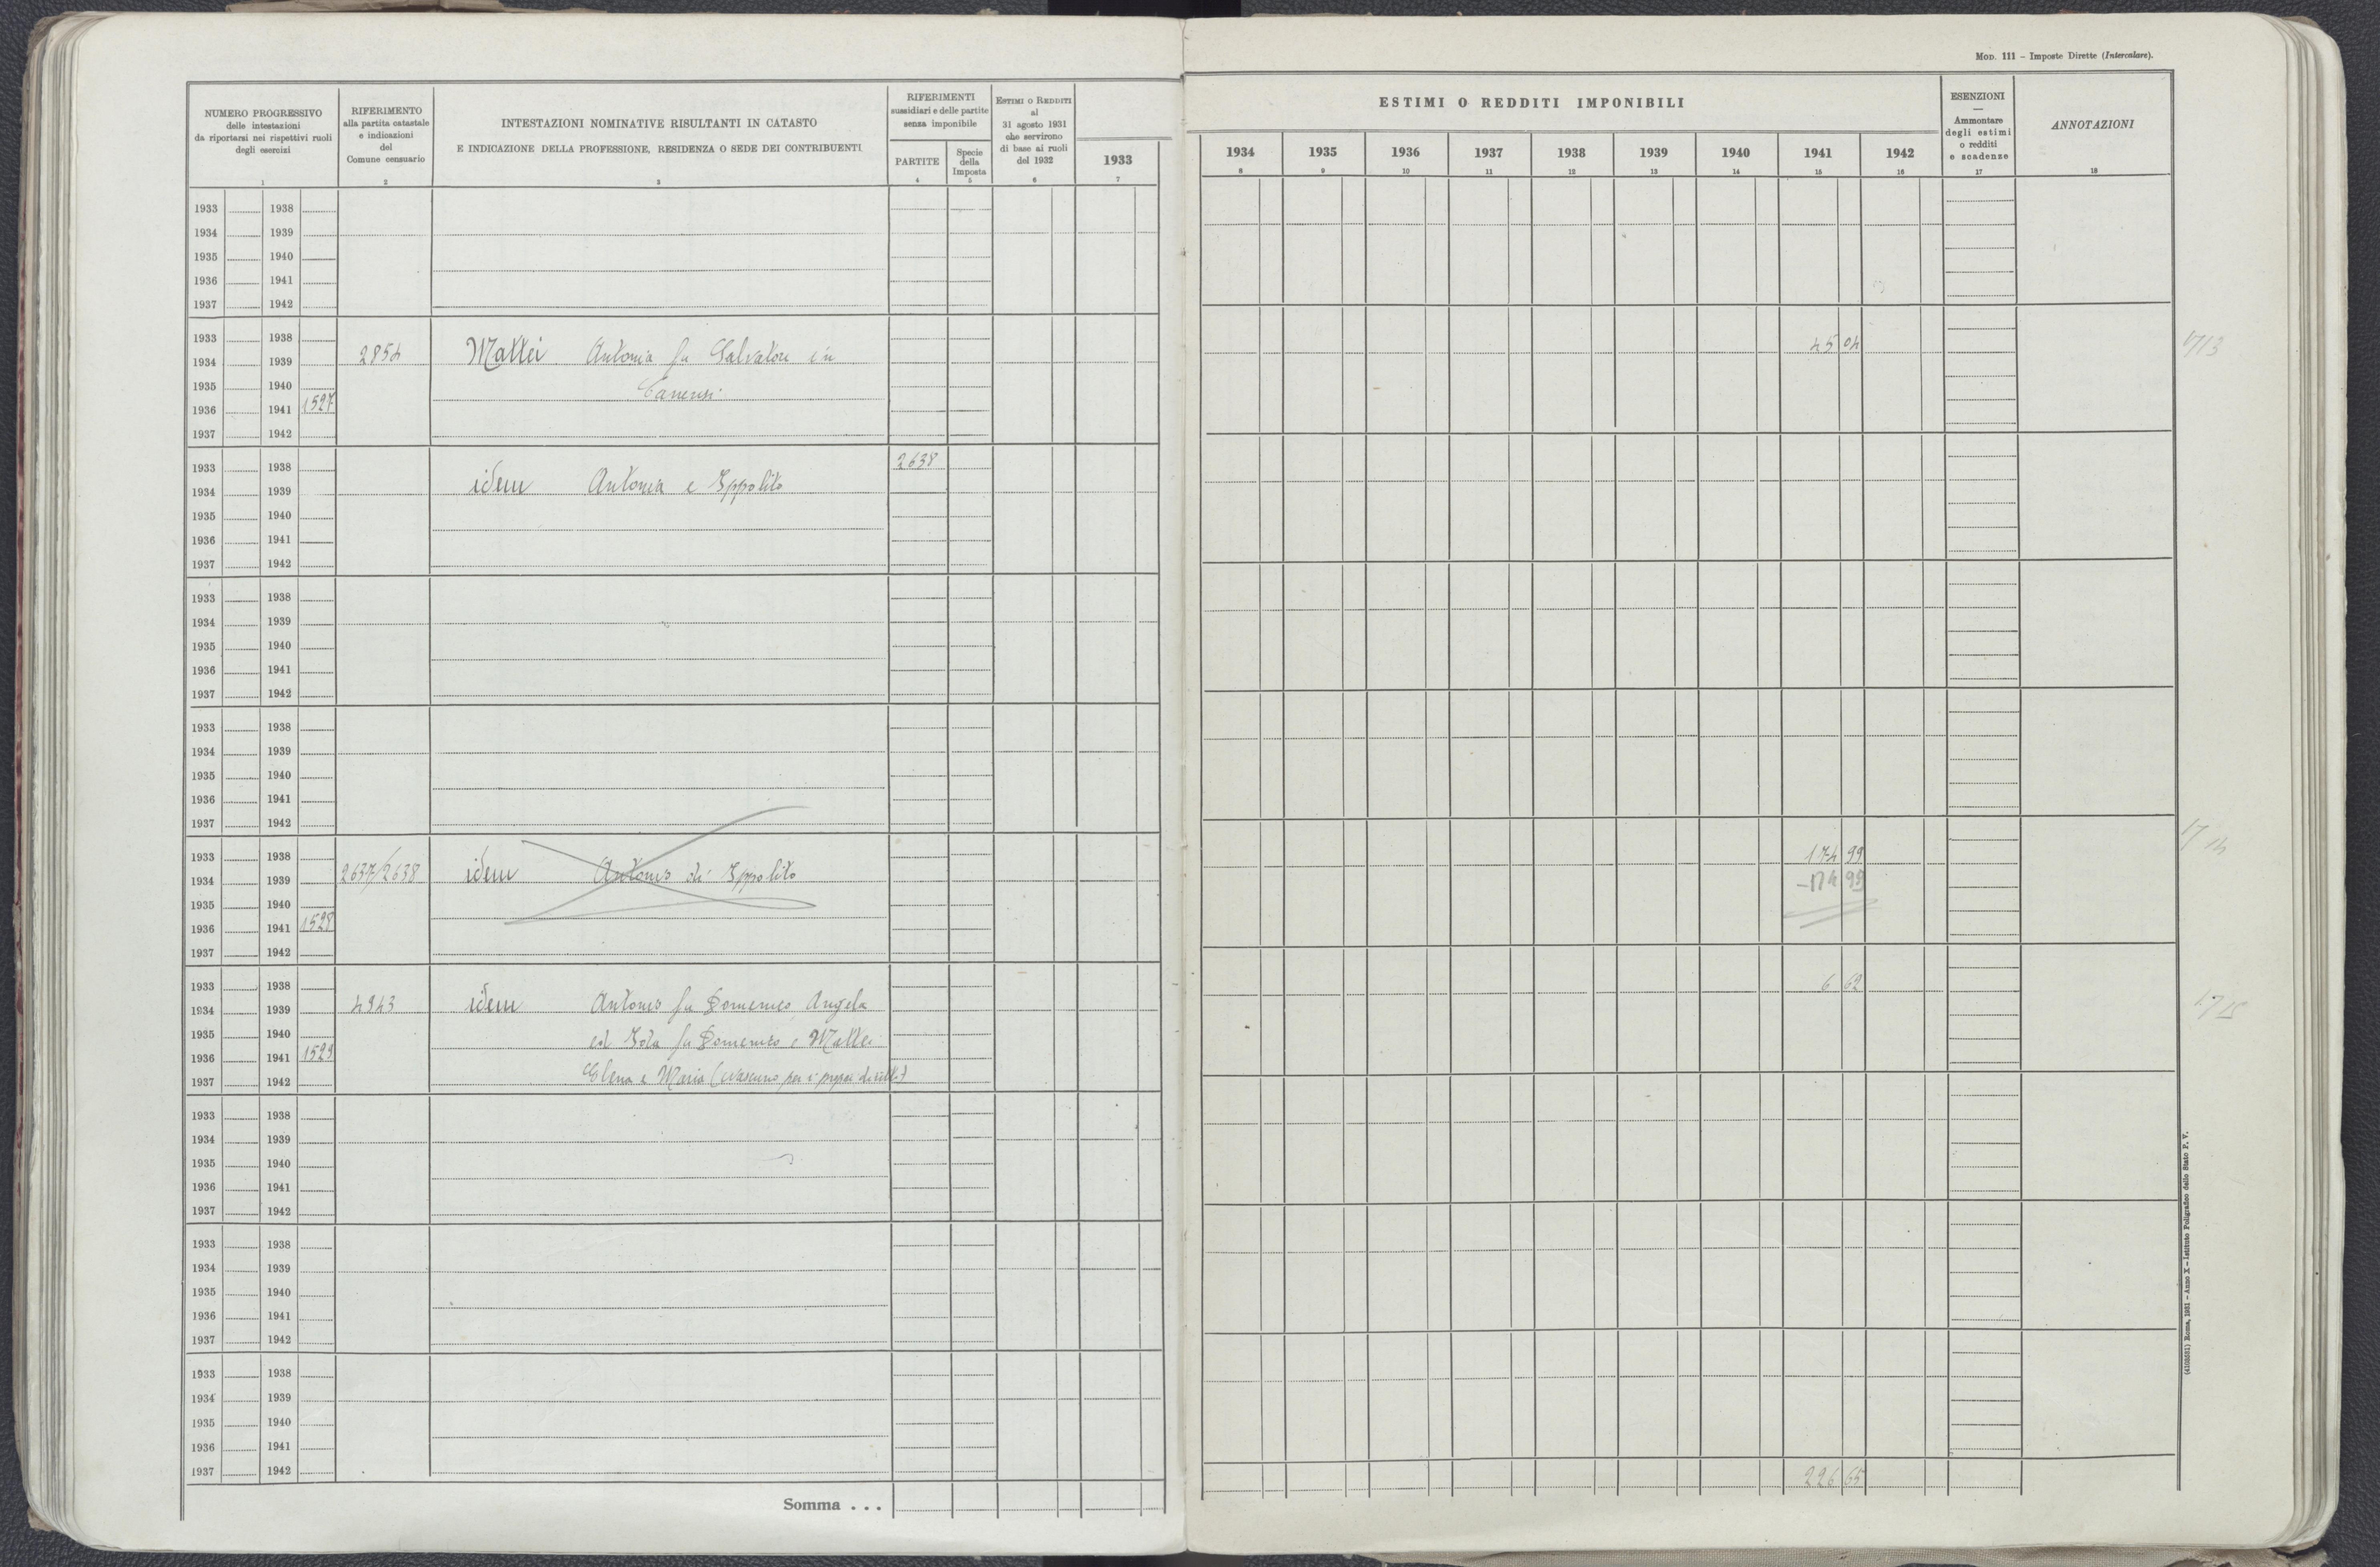 Mod. 111 – Imposte Dirette (Intercalare).
NUMERO PROGRESSIVO
delle intestazioni
da riportarsi nei rispettivi ruoli
degli esercizi
1
RIFERIMENTO
alla partita catastale
e indicazioni
del
Comune censuario
2
INTESTAZIONI NOMINATIVE RISULTANTI IN CATASTO
E INDICAZIONE DELLA PROFESSIONE, RESIDENZA O SEDE DEI CONTRIBUENTI
3
RIFERIMENTI
sussidiari e delle partite
senza imponibile
PARTITE
4
Specie
della
Imposta
5
Estimi o Redditi
al
31 agosto 1931
che servirono
di base ai ruoli
del 1932
6
1933
7
ESTIMI O REDDITI IMPONIBILI
1934 1935 1936 1937 1938 1939 1940 1941 1942
8 9 10 11 12 13 14 15 16
ESENZIONI
—
Ammontare
degli estimi
o redditi
e scadenze
17
ANNOTAZIONI
18
1933 1938
1934 1939
1935 1940
1936 1941
1937 1942
1933 1938
1934 1939 2854 Mattei Antonia fu Salvatore in 45 04 1713
1935 1940 Canensi
1936 1941 1527
1937 1942
1933 1938 2638
1934 1939 idem Antonia e Ippolito
1935 1940
1936 1941
1937 1942
1933 1938
1934 1939
1935 1940
1936 1941
1937 1942
1933 1938
1934 1939
1935 1940
1936 1941
1937 1942
1933 1938 174 99 1714
1934 1939 2637/2638 idem Antonio di Ippolito –174 99
1935 1940
1936 1941 1528
1937 1942
1933 1938 6 62
1934 1939 4943 idem Antonio fu Domenico, Angela 1715
1935 1940 ed Iola fu Domenico e Mattei
1936 1941 1529
1937 1942 Elena e Maria (ciascuno per i propri diritti)
1933 1938
1934 1939
1935 1940
1936 1941
1937 1942
1933 1938
1934 1939
1935 1940
1936 1941
1937 1942
1933 1938
1934 1939
1935 1940
1936 1941
1937 1942
Somma . . . 226 65
(4103581) Roma, 1931 – Anno X – Istituto Poligrafico dello Stato P. V.